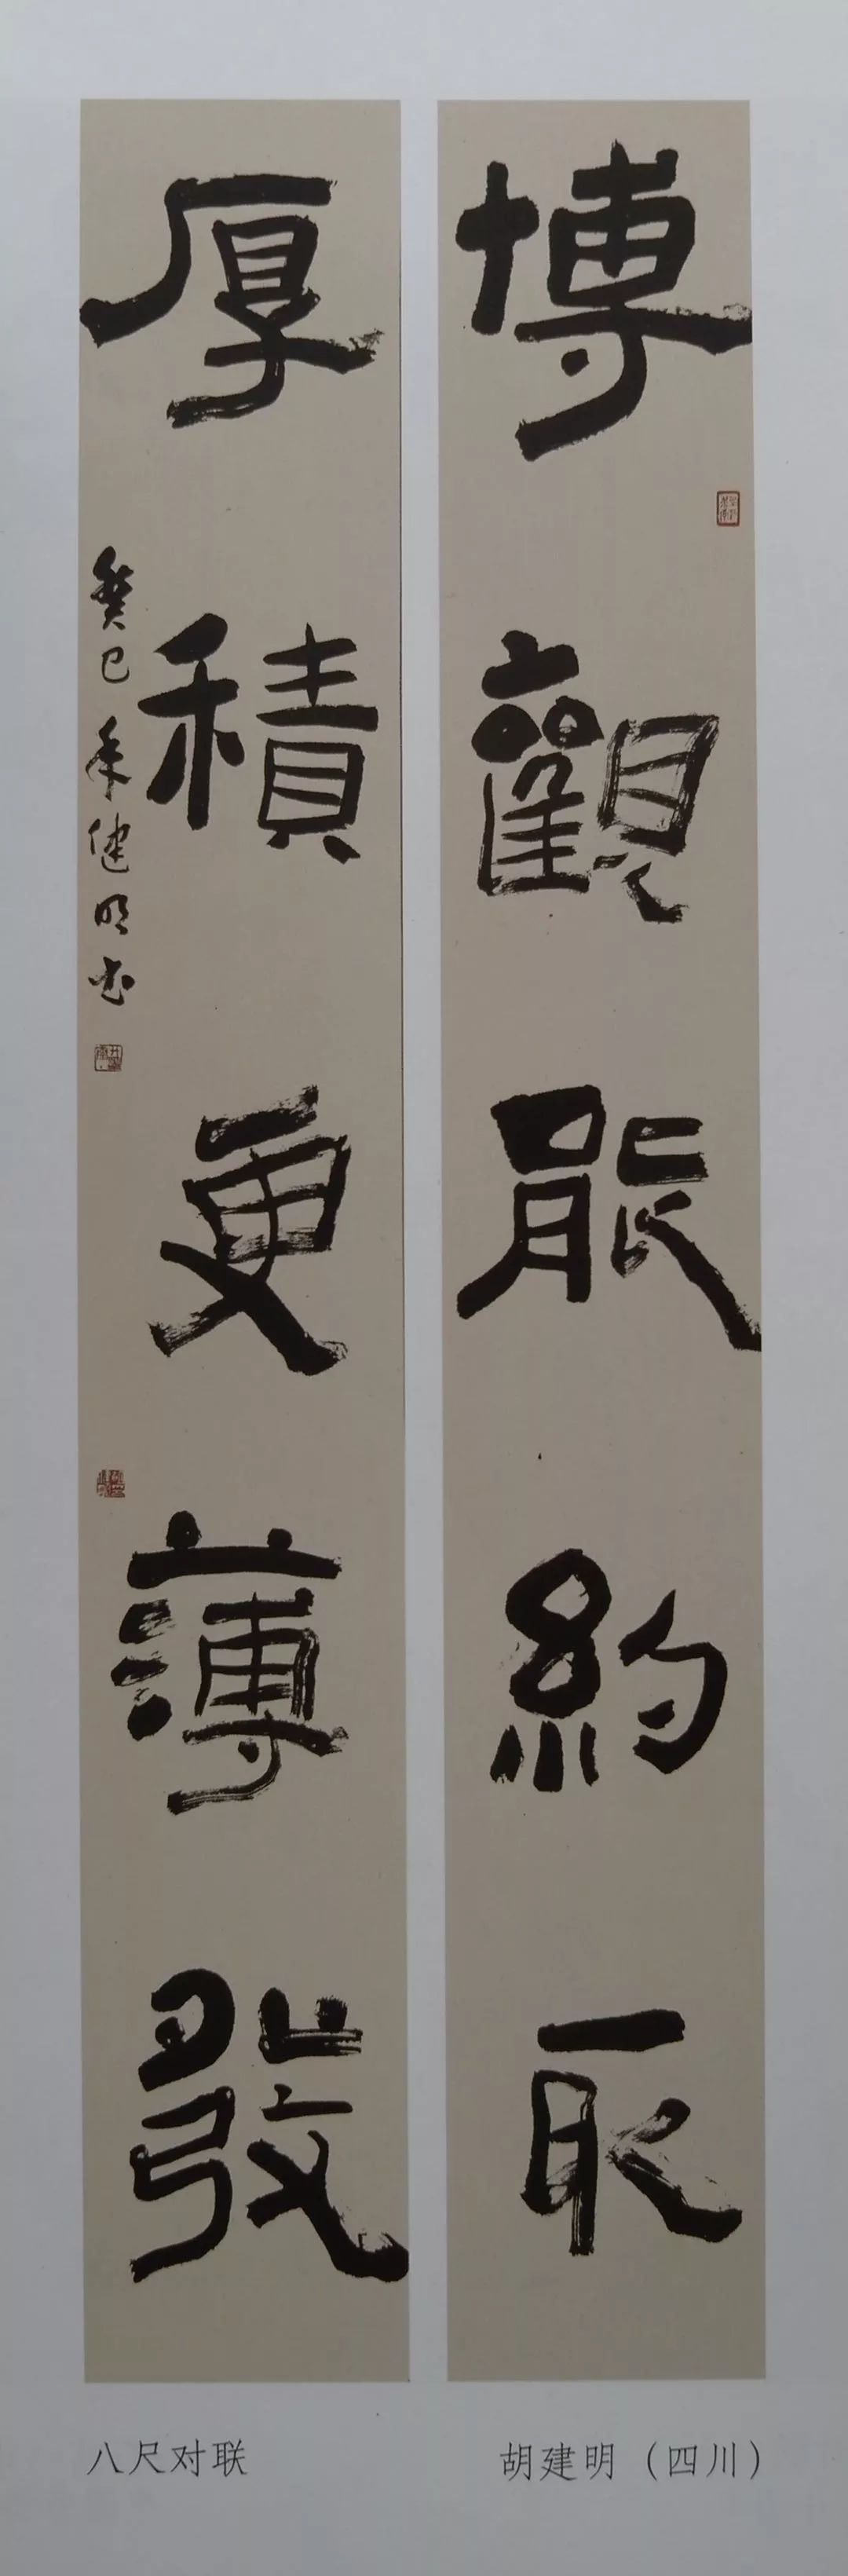 博觀能約取
厚積更薄發
癸巳年健明书
八尺对联
胡建明（四川）